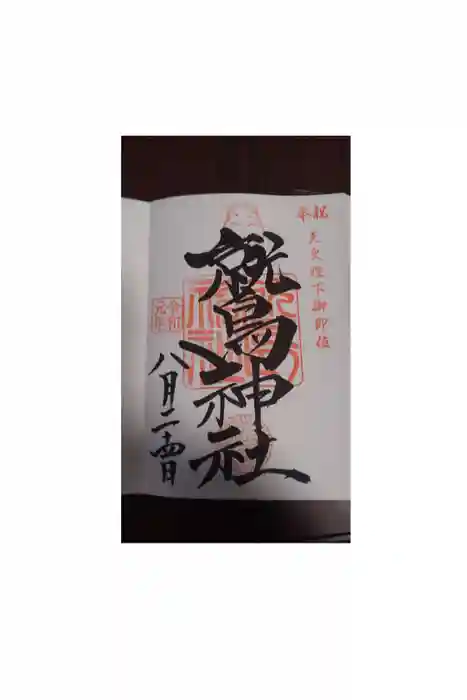 奉祝
天皇陛下御即位
鷲神社
令和元年
八月二十四日